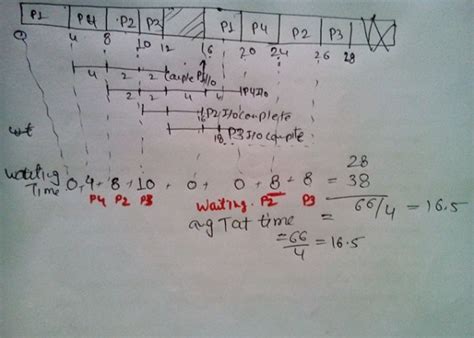 P1 P4 P2 P3 P1 P4 P2 P3
0 4 8 10 12 16 20 24 26 28
4 2 2 P1 I/o
2 2 4 4 P4 I/o
16 P2 I/o complete
18 P3 I/o complite
wt
Waiting Time 0+4+8+10+0+0+8+8 = 28
38
P4 P2 P3 Waiting. P2 P3
= 66/4 = 16.5
avg Tat time
= 66/4 = 16.5